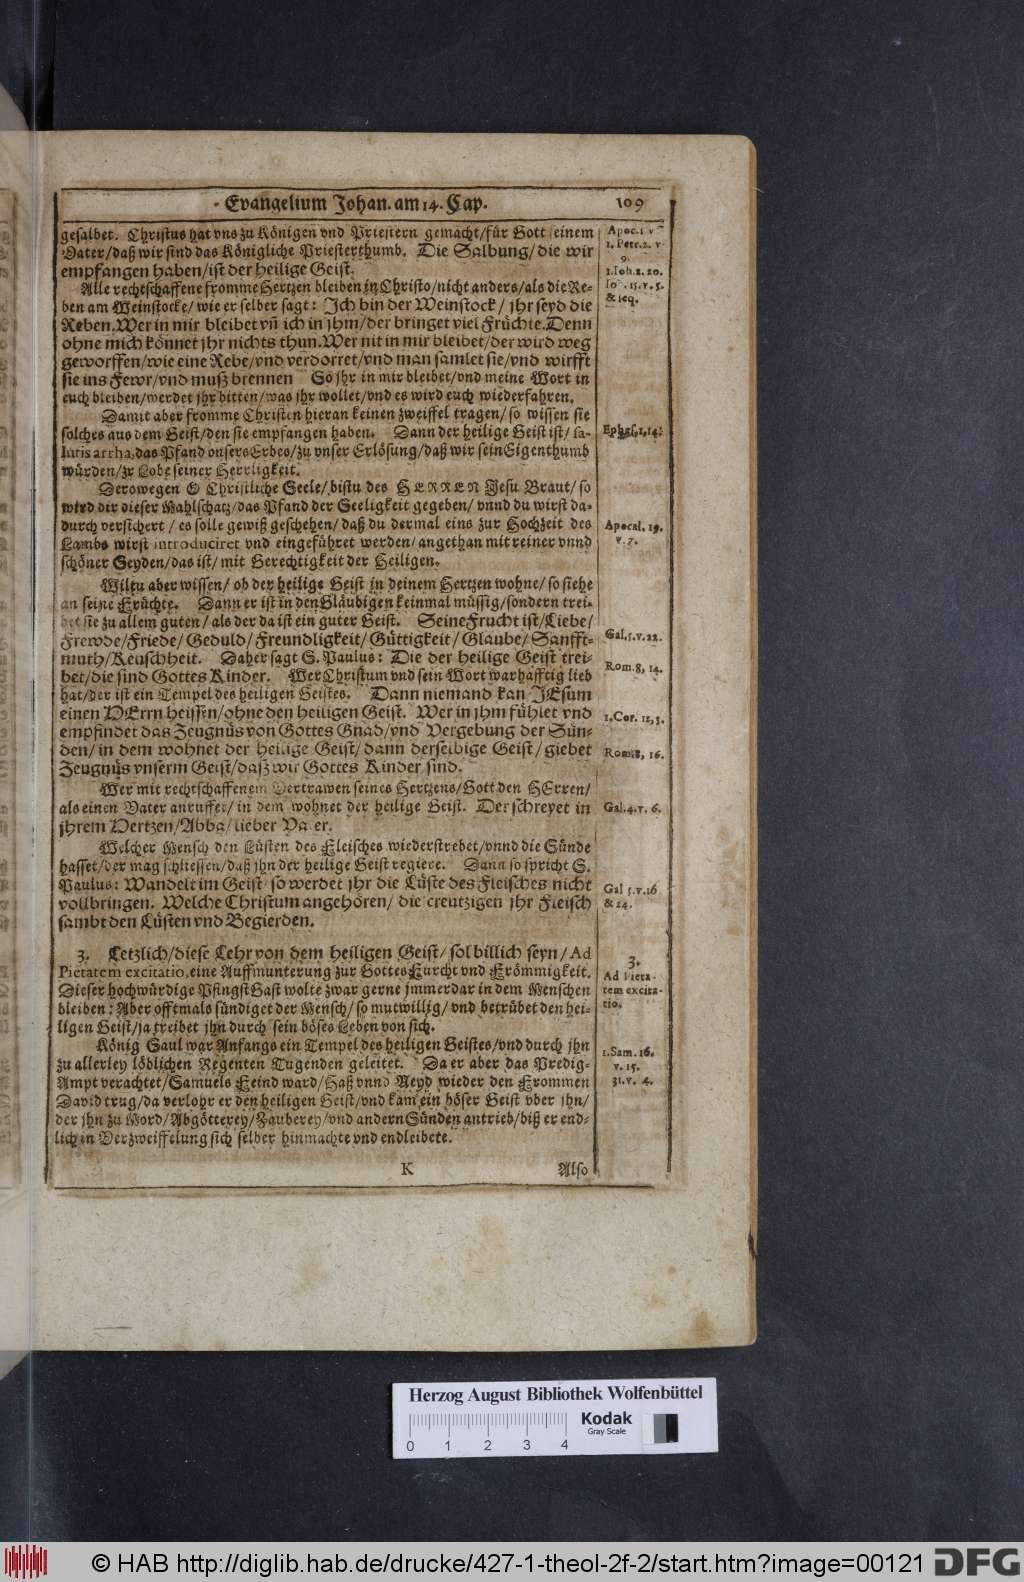 Evangelium Johan. am 14. Cap. 109
gesalbet. Christus hat vns zu Königen vnd Priestern gemacht/für Gott seinem
Vater/daß wir sind das Königliche Priesterthumb. Die Salbung/die wir
empfangen haben/ist der heilige Geist.
Alle rechtschaffene fromme Hertzen bleiben in Christo/nicht anders/als die Re-
ben am Weinstocke/wie er selber sagt: Ich bin der Weinstock/jhr seyd die
Reben. Wer in mir bleibet vñ ich in jhm/der bringet viel Früchte. Denn
ohne mich könnet jhr nichts thun. Wer nit in mir bleibet/der wird weg
geworffen/wie eine Rebe/vnd verdorret/vnd man samlet sie/vnd wirfft
sie ins Fewr/vnd muß brennen So jhr in mir bleibet/vnd meine Wort in
euch bleiben/werdet jhr bitten/was jhr wollet/vnd es wird euch wiederfahren.
Damit aber fromme Christen hieran keinen zweiffel tragen/so wissen sie
solches aus dem Geist/den sie empfangen haben. Dann der heilige Geist ist/sa-
lutis arrha, das Pfand vnsers Erbes/zu vnser Erlösung/daß wir sein Eigenthumb
würden/zr Lobe seiner Herrligkeit.
Derowegen O Christliche Seele/bistu des HERREN Jesu Braut/so
wird dir dieser Mahlschatz/das Pfand der Seeligkeit gegeben/vnnd du wirst da-
durch versichert/es solle gewiß geschehen/daß du dermal eins zur Hochzeit des
Lambs wirst introduciret vnd eingeführet werden/angethan mit reiner vnnd
schöner Seyden/das ist/mit Gerechtigkeit der Heiligen.
Wiltu aber wissen/ob der heilige Geist in deinem Hertzen wohne/so siehe
an seine Früchte. Dann er ist in den Gläubigen keinmal müssig/sondern trei-
bet sie zu allem guten/als der da ist ein guter Geist. Seine Frucht ist/Liebe/
Frewde/Friede/Geduld/Freundligkeit/Güttigkeit/Glaube/Sanfft-
muth/Keuschheit. Daher sagt S. Paulus: Die der heilige Geist trei-
bet/die sind Gottes Kinder. Wer Christum vnd sein Wort warhafftig lieb
hat/der ist ein Tempel des heiligen Geistes. Dann niemand kan JEsum
einen HErrn heissen/ohne den heiligen Geist. Wer in jhm fühlet vnd
empfindet das Zeugnüs von Gottes Gnad/vnd Vergebung der Sün-
den/in dem wohnet der heilige Geist/dann derselbige Geist/giebet
Zeugnüs vnserm Geist/dasz wir Gottes Kinder sind.
Wer mit rechtschaffenem Vertrawen seines Hertzens/Gott den HErren/
als einen Vater anruffet/in dem wohnet der heilige Geist. Der schreyet in
jhrem Hertzen/Abba/lieber Vater.
Welcher Mensch den Lüsten des Fleisches wiederstrebet/vnnd die Sünde
hasset/der mag schliessen/daß jhn der heilige Geist regiere. Dann so spricht S.
Paulus: Wandelt im Geist/so werdet jhr die Lüste des Fleisches nicht
vollbringen. Welche Christum angehören/die creutzigen jhr Fleisch
sambt den Lüsten vnd Begierden.
3. Letzlich/diese Lehr von dem heiligen Geist/sol billich seyn/Ad
Pietatem excitatio, eine Auffmunterung zur Gottes Furcht vnd Frömmigkeit.
Dieser hochwürdige Pfingst Gast wolte zwar gerne jmmerdar in dem Menschen
bleiben: Aber offtmals sündiget der Mensch/so mutwillig/vnd betrübet den hei-
ligen Geist/ja treibet jhn durch sein böses Leben von sich.
König Saul war Anfangs ein Tempel des heiligen Geistes/vnd durch jhn
zu allerley löblichen Regenten Tugenden geleitet. Da er aber das Predig-
Ampt verachtet/Samuels Feind ward/Haß vnnd Neyd wieder den Frommen
David trug/da verlohr er den heiligen Geist/vnd kam ein böser Geist vber jhn/
der jhn zu Mord/Abgötterey/Zauberey/vnd andern Sünden antrieb/biß er end-
lich in Verzweiffelung sich selber hinmachte vnd endleibete.
K Also
Apoc.1 v
1. Petr.2. v.
9.
1.Joh.2. 20.
Joh. 15. v. 5.
& seq.
Ephes.1,14.
Apocal. 19.
v. 7.
Gal.5.v.22.
Rom.8, 14.
1.Cor. 12,3.
Rom.8, 16.
Gal.4.v. 6.
Gal 5.v.16
& 24.
3.
Ad Pieta-
tem excita-
tio.
1.Sam. 16.
v. 15.
31.v. 4.
Herzog August Bibliothek Wolfenbüttel
Kodak
Gray Scale
0 1 2 3 4
© HAB http://diglib.hab.de/drucke/427-1-theol-2f-2/start.htm?image=00121
DFG